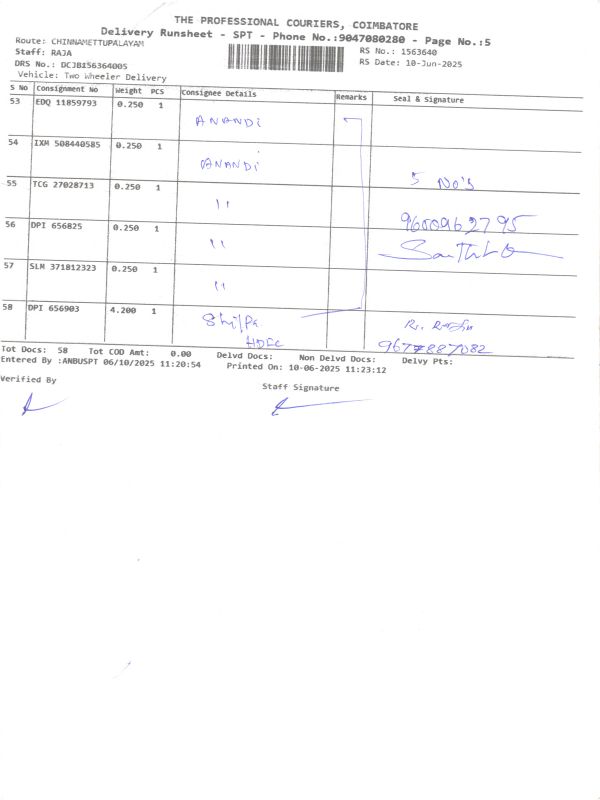 THE PROFESSIONAL COURIERS, COIMBATORE
Delivery Runsheet - SPT - Phone No.:9047080280 - Page No.:5
Route: CHINNAMETTUPALAYAM
RS No.: 1563640
Staff: RAJA
RS Date: 10-Jun-2025
DRS No.: DCJB156364005
Vehicle: Two Wheeler Delivery
S No Consignment No Weight PCS Consignee Details Remarks Seal & Signature
53 EDQ 11859793 0.250 1
ANANDi
54 IXM 508440585 0.250 1
ANANDi
55 TCG 27028713 0.250 1
5 No's
11
56 DPI 656825 0.250 1
9600962795
11
57 SLM 371812323 0.250 1
11
58 DPI 656903 4.200 1
Shilpa
HDFC
9677887082
Tot Docs: 58 Tot COD Amt: 0.00 Delvd Docs: Non Delvd Docs: Delvy Pts:
Entered By :ANBUSPT 06/10/2025 11:20:54 Printed On: 10-06-2025 11:23:12
Verified By
Staff Signature